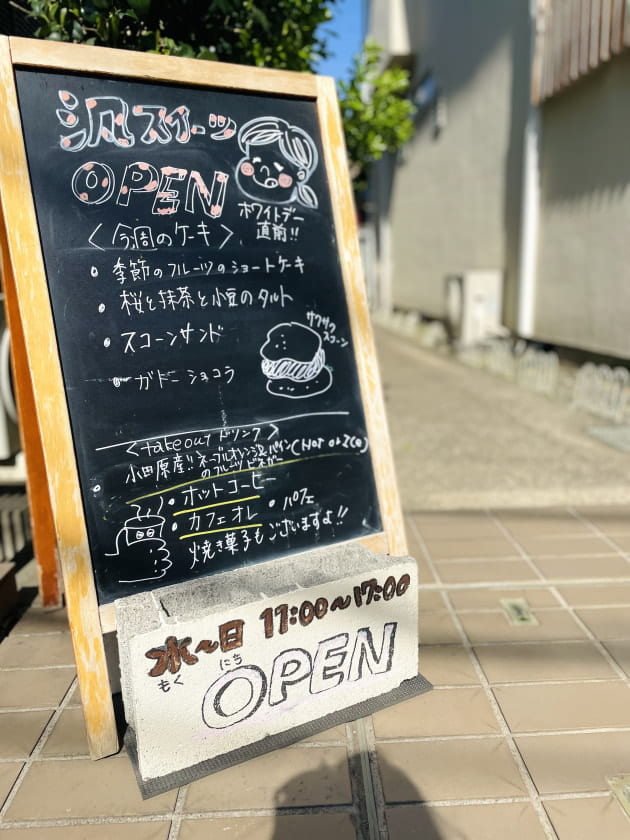 汎スイーツ
OPEN
ホワイトデー
直前!!
<今週のケーキ>
• 季節のフルーツのショートケーキ
• 桜と抹茶と小豆のタルト
• スコーンサンド
サクサク
スコーン
• ガトーショコラ
<takeout ドリンク>
• 小田原産!! ネーブルオレンジ&パイン(Hot or Ice)
のフルーツビネガー
• ホットコーヒー
• カフェオレ • パフェ
焼き菓子もございますよ!!
水~日 11:00~17:00
もく にち
OPEN